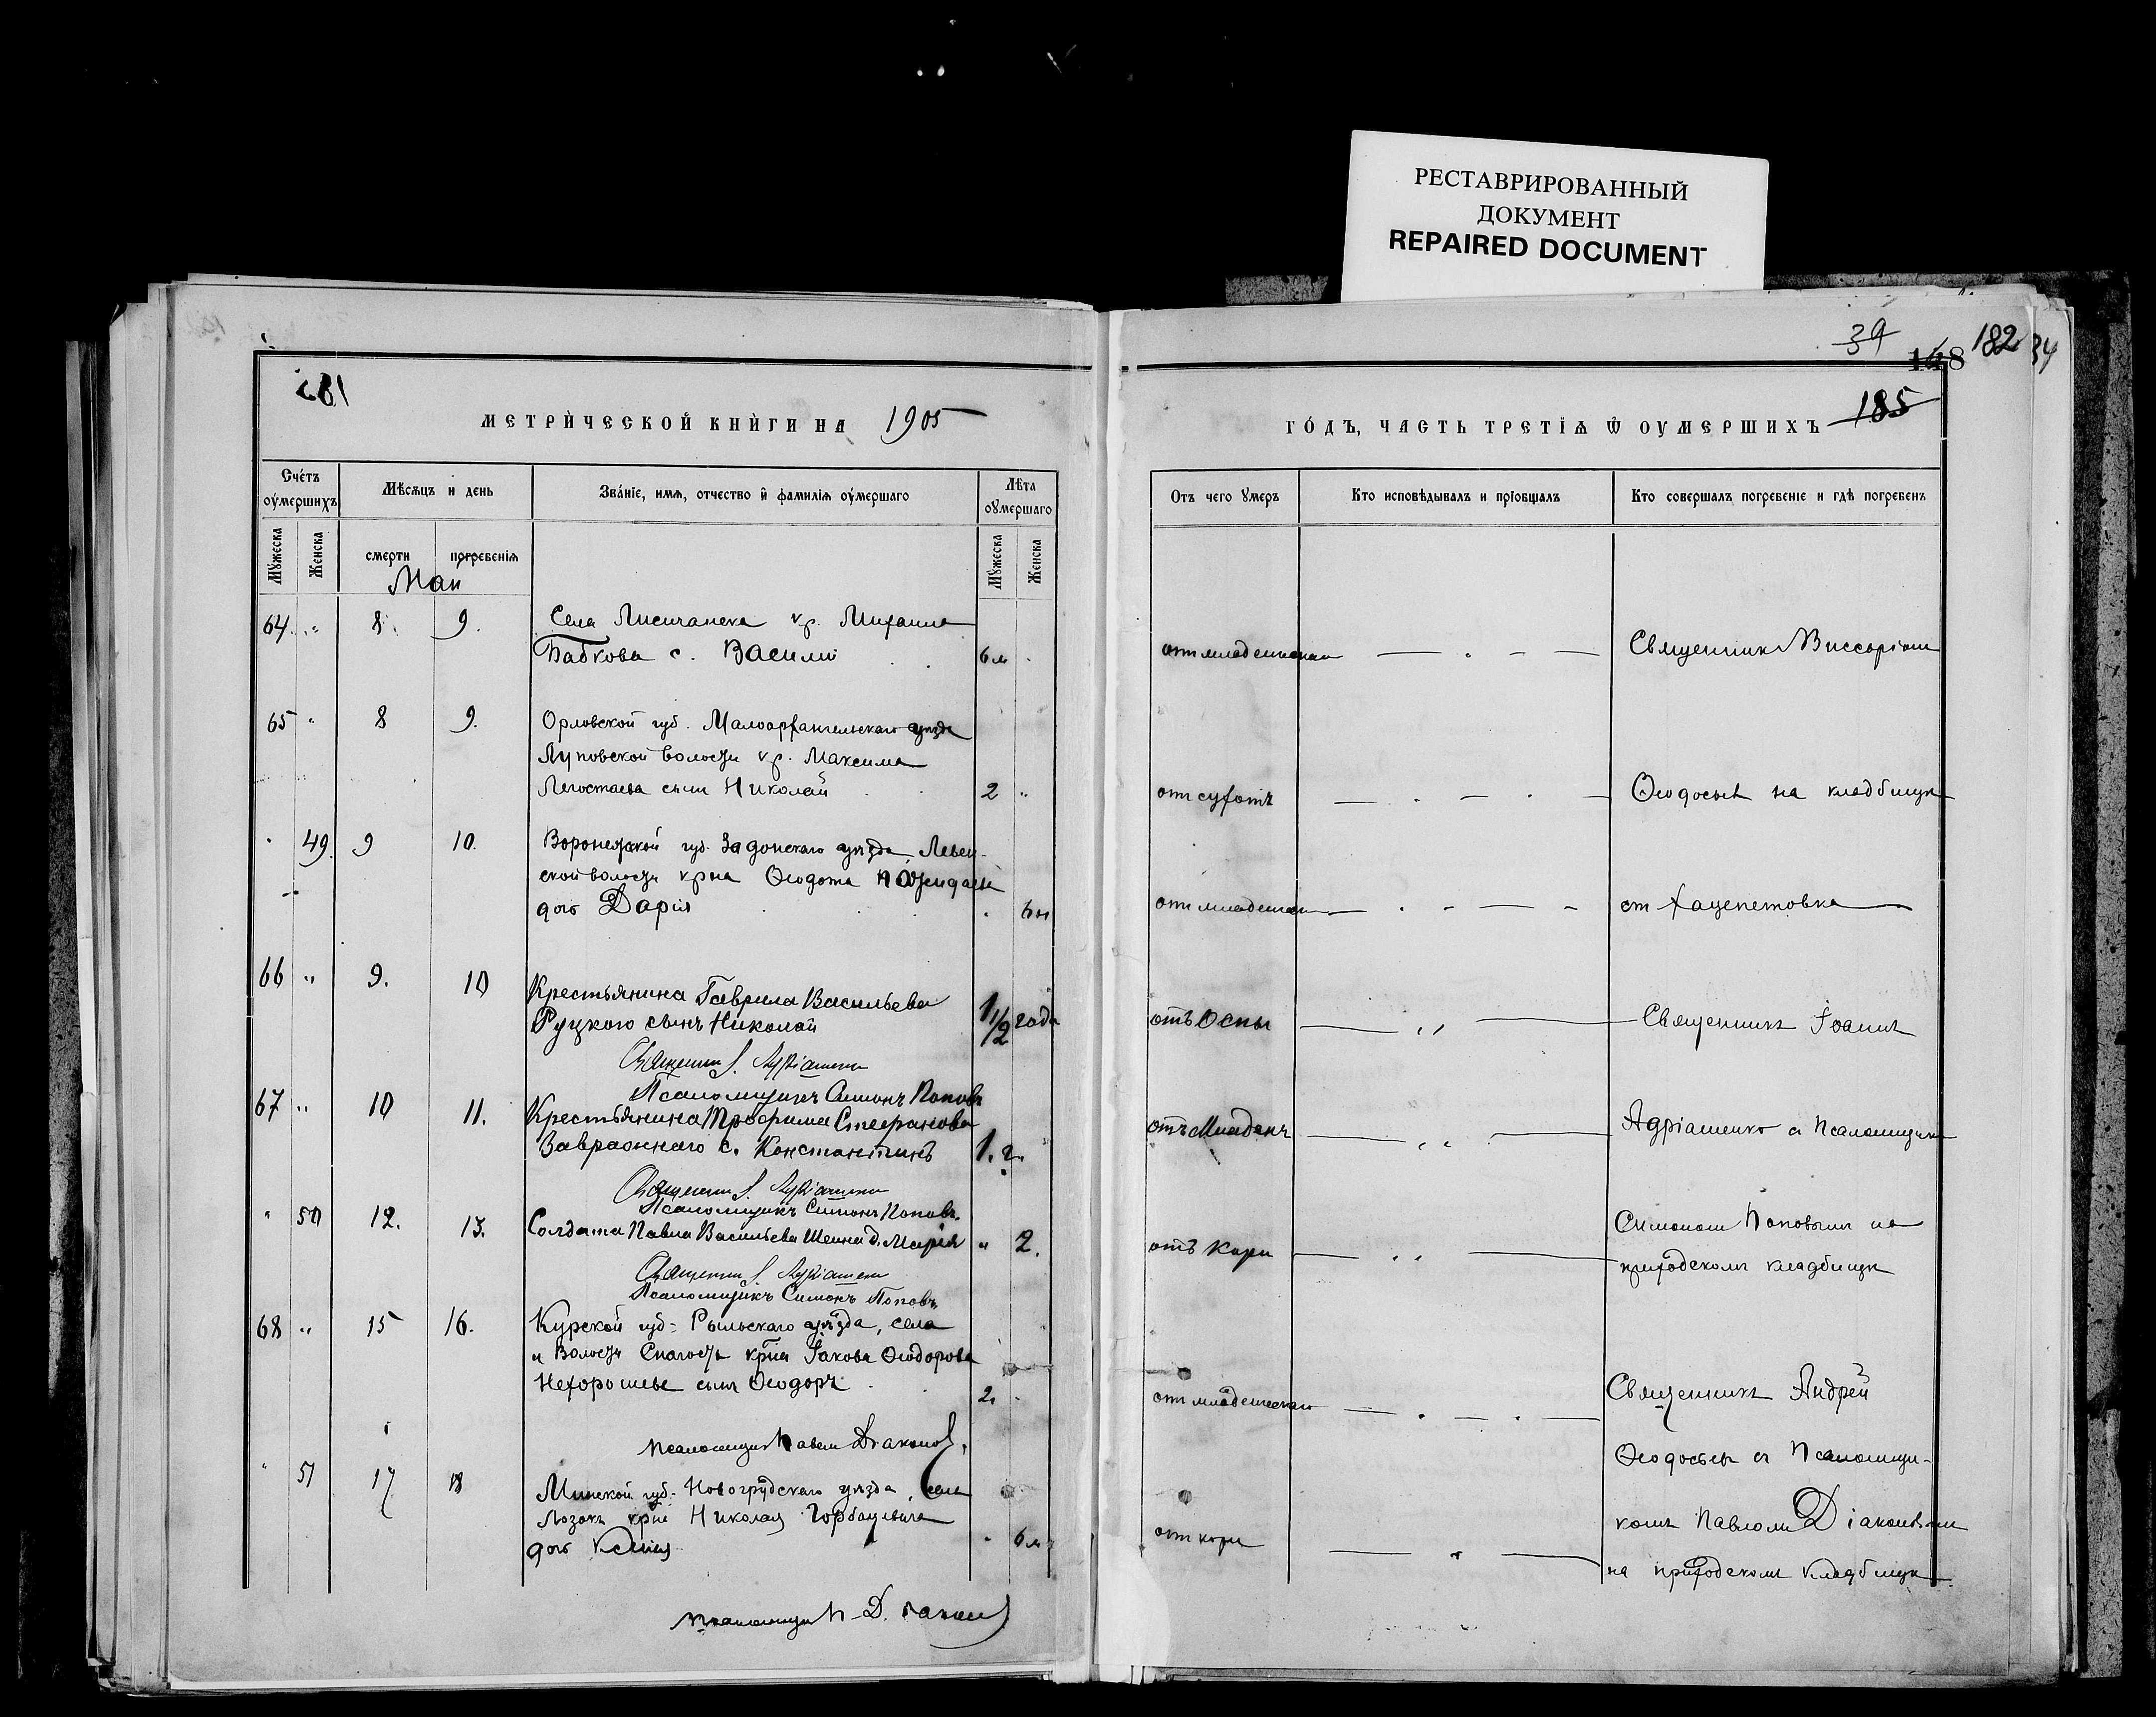 РЕСТАВРИРОВАННЫЙ
ДОКУМЕНТ
REPAIRED DOCUMENT
39
148
182
34
185
МЕТРИ́ЧЕСКОЙ КНИ́ГИ НА 1905
ГО́ДЪ, ЧАСТЬ ТРЕТІѦ Ѿ ОУМЕРШИХЪ
Сче́тъ
оу́мершихъ
Мѣсѧцъ и день
Зва́ніе, имѧ, отчество и҆ фамиліѧ оу́мершаго
Лѣта
оумершаго
Мꙋжеска
Женска
смерти
погребеніѧ
Мꙋжеска
Женска
Отъ чего ꙋмеръ
Кто исповѣдывалъ и прїобщалъ
Кто совершалъ погребеніе и гдѣ погребенъ
Маи
64 " 8 9. Села Лисичанска кр. Михаила
Бабкова с. Василий 6 м
Священник Виссаріон
65 " 8 9. Орловской губ. Малоархангельскаго уѣзда
Луковской волости кр. Максима
Легостаева сын Николай 2 "
от сухотъ
Ѳеодосьев на кладбищѣ
" 49. 9 10. Воронежской губ. Задонскаго уѣзда,
ской волости кр на Ѳеодота
дочь Дарія 6 м
от Хацепетовка
66 " 9. 10 Крестьянина Гаврила Васильева
Руцкого сынъ Николай 1 1/2 года
отъ Оспы
Священникъ Іоаннъ
Священник І. Адріаненко
Псаломщикъ Симонъ Поповъ
67 " 10 11. Крестьянина Трофима Стефанова
Завражнаго с. Константинъ 1. г.
отъ Младенч
Адріаненко с Псаломщик
Священник І. Адріаненко
Псаломщикъ Симонъ Поповъ.
" 50 12. 13. Солдата Павла Васильева Шеина д. Марія " 2.
отъ Кори
Симоном Поповым на
приходскомъ кладбищѣ
Священник І. Адріаненко
Псаломщикъ Симонъ Поповъ
68 " 15 16. Курской губ. Рыльскаго уѣзда, села
и Волости Снагость кр на Іакова Ѳеодорова
Нехорошева сынъ Ѳеодоръ 2
от младенческаго
Священникъ Андрей
Псаломщик Павел Діаконов
Ѳеодосьев с Псаломщи-
" 51 17 18 Минской губ. Новогрудскаго уѣзда, села
Николая Горбацевича
дочь Ксенія 6 м
от кори
комъ Павлом Діаконовым
на приходском кладбищѣ
Псаломщик П. Діаконов